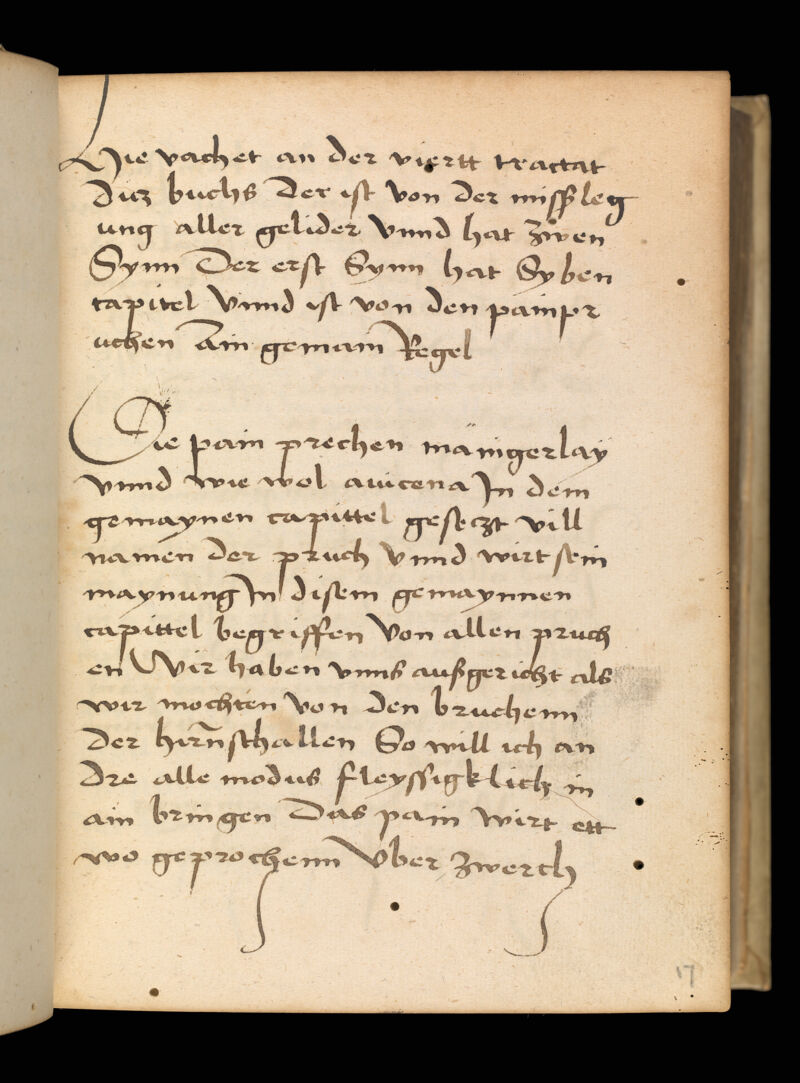 Hie vachet an der viertt tractat
Dicz buchs Der ist von der missleg
ung aller gelider Vnnd hat Zwen
Synn Der erst Synn hat Syben
capitel Vnnd ist von den painpr
uchen Ain gemain Regel
Die pain prechen mänigerlay
vnnd wie wol auicena In dem
gemaynen capittel geseczt vill
namen der pruch vnnd wirt sein
maynung In disem gemaynnen
capittel begriffen Von allen pruch
en Wir haben vnns außgericht als
wir mochten Von den bruchenn
der hirnschallen So will ich an
dre alle modus fleyssigklich in
ain bringen Das pain wirt ett
wo geprochenn Vber Zwerch
17